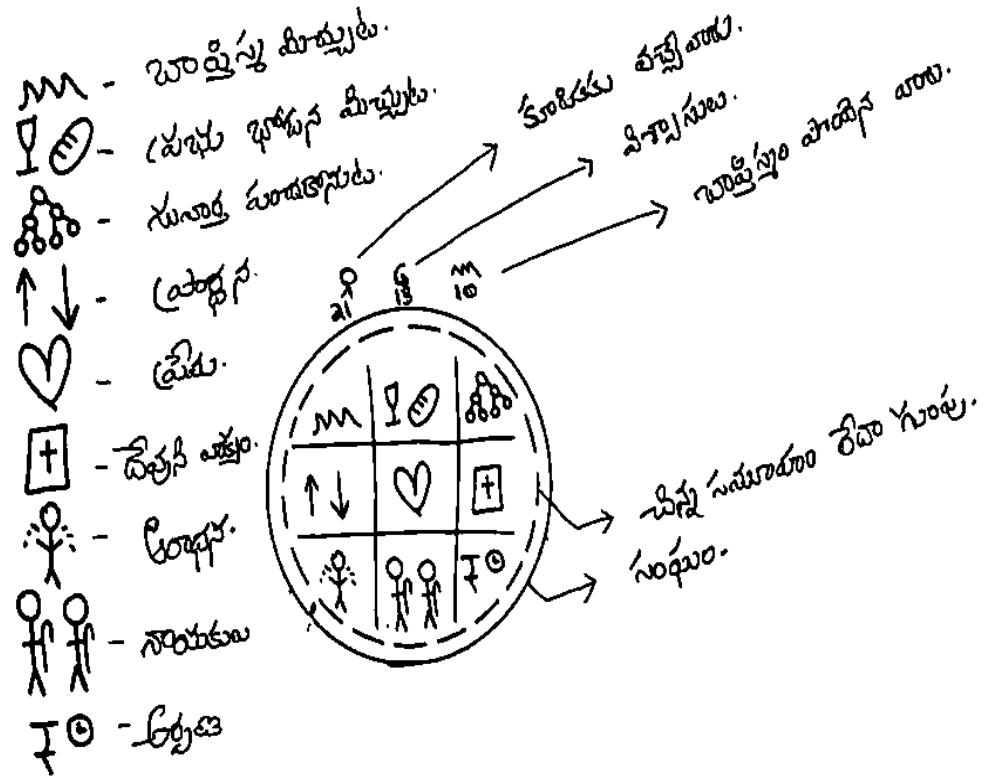 బాప్తిస్మ మిచ్చుట.
ప్రభు భోజన మిచ్చుట.
సువార్త పంచుకొనుట.
ప్రార్థన.
ప్రేమ.
దేవుని వాక్యం.
ఆరాధన.
నాయకులు
అర్పణ
కూడికకు వచ్చేవారు.
విశ్వాసులు.
బాప్తిస్మం పొందిన వారు.
21
13
10
చిన్న సమూహం లేదా గుంపు.
సంఘం.